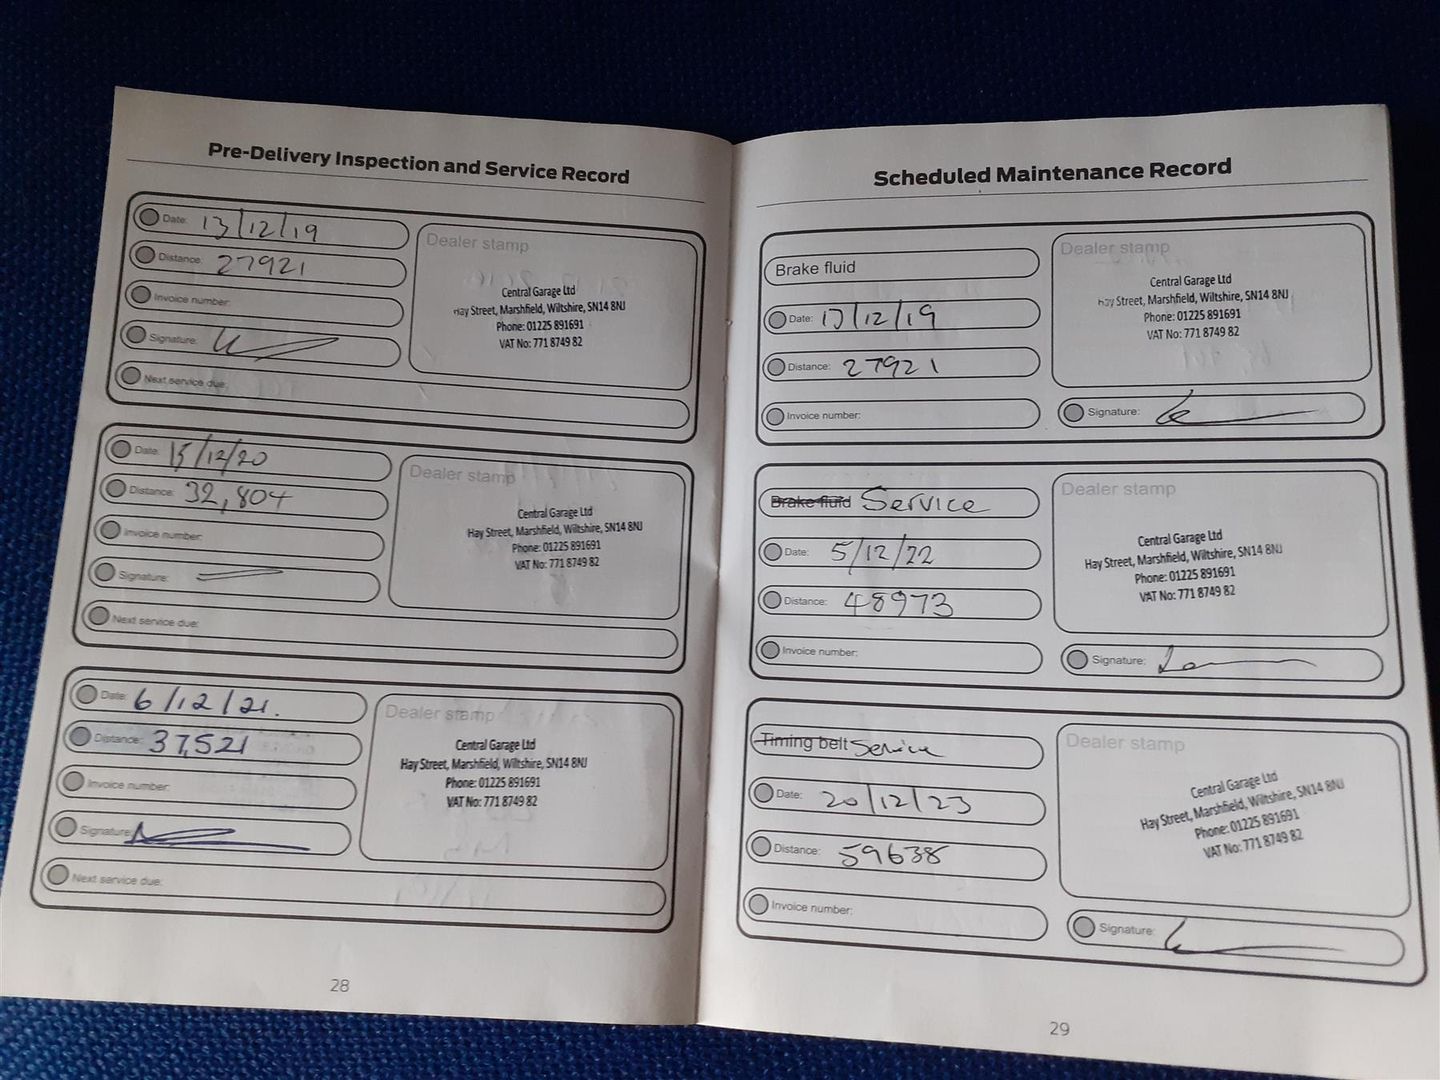 Pre-Delivery Inspection and Service Record
Date: 13/12/19
Distance: 27921
Invoice number:
Signature:
Next service due:
Dealer stamp
Central Garage Ltd
Hay Street, Marshfield, Wiltshire, SN14 8NJ
Phone: 01225 891691
VAT No: 771 8749 82
Date: 15/12/20
Distance: 32,804
Invoice number:
Signature:
Next service due:
Dealer stamp
Central Garage Ltd
Hay Street, Marshfield, Wiltshire, SN14 8NJ
Phone: 01225 891691
VAT No: 771 8749 82
Date: 6/12/21.
Distance: 37,521
Invoice number:
Signature:
Next service due:
Dealer stamp
Central Garage Ltd
Hay Street, Marshfield, Wiltshire, SN14 8NJ
Phone: 01225 891691
VAT No: 771 8749 82
28
Scheduled Maintenance Record
Brake fluid
Date: 13/12/19
Distance: 27921
Invoice number:
Dealer stamp
Central Garage Ltd
Hay Street, Marshfield, Wiltshire, SN14 8NJ
Phone: 01225 891691
VAT No: 771 8749 82
Signature:
Brake fluid Service
Date: 5/12/22
Distance: 48973
Invoice number:
Dealer stamp
Central Garage Ltd
Hay Street, Marshfield, Wiltshire, SN14 8NJ
Phone: 01225 891691
VAT No: 771 8749 82
Signature:
Timing belt Service
Date: 20/12/23
Distance: 59638
Invoice number:
Dealer stamp
Central Garage Ltd
Hay Street, Marshfield, Wiltshire, SN14 8NJ
Phone: 01225 891691
VAT No: 771 8749 82
Signature:
29